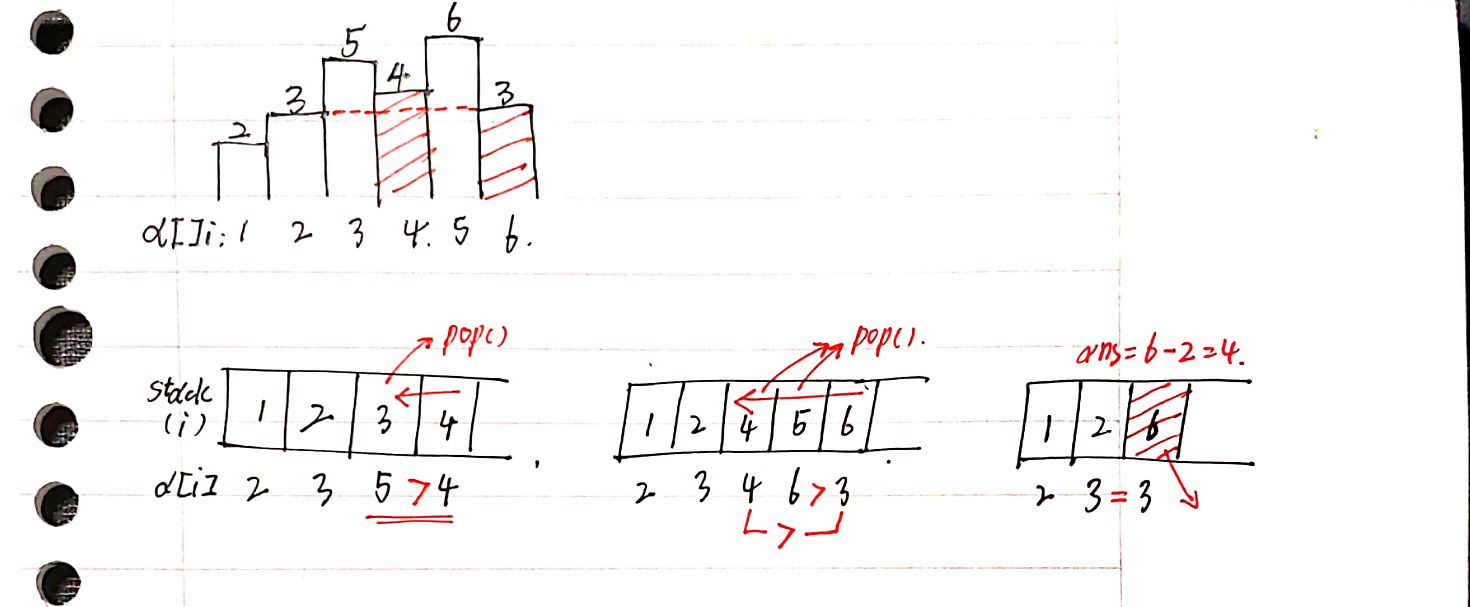 6
5
4
3 3
2
a[]i: 1 2 3 4. 5 6.
pop() pop(). ans=6-2=4.
stack (i) 1 2 3 4 1 2 4 5 6 1 2 6
a[i] 2 3 5 > 4 2 3 4 6 > 3 2 3 = 3
>